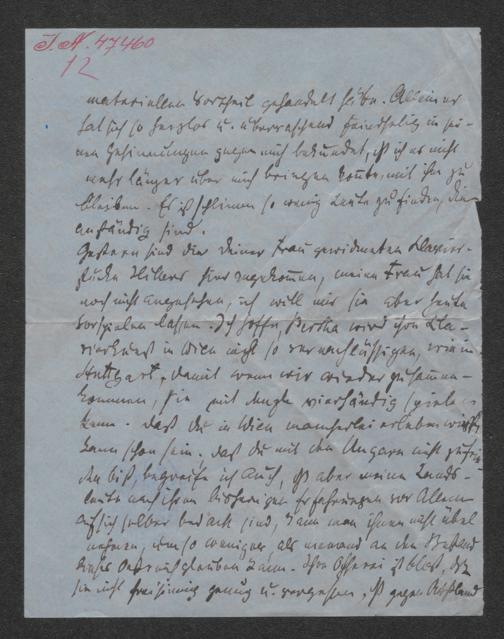 I.N. 47460
12
materiellen Vortheil gehandelt hätte. Allein er
hat sich so herzlos u. überraschend feindselig in sei-
nen Gesinnungen gegen mich bekundet, ich es nicht
mehr länger über mich bringen konnte, mit ihm zu
bleiben. Es ist schlimm so wenig Leute zu finden, die
anständig sind.
Gestern sind die Deiner Frau gewidmeten Klavier-
stücke Hillers hier angekommen, meine Frau hat sie
noch nicht angesehen, ich will mir sie aber heute
vorspielen lassen. Ich hoffe, Bertha wird ihr Kla-
vierkunst in Wien nicht so vernachlässigen, wie in
Stuttgart, damit wenn wir wieder zusammen-
kommen, sie mit vierhändig spielen
kann. daß Du in Wien mancherlei erleben wirst
kann schon sein. daß Du mit den Ungarn nicht zufrie-
den bist, begreife ich auch, aber meine Lands-
leute nach ihren bisherigen Erfahrungen vor Allem
auf sich selber bedacht sind, kann man ihnen nicht übel
nehmen, um so weniger, als niemand an den Bestand
dieses Oesterreichs glauben kann. ist bloß, daß
sie nicht freisinnig genug u. vorgehen, gegen Rußland